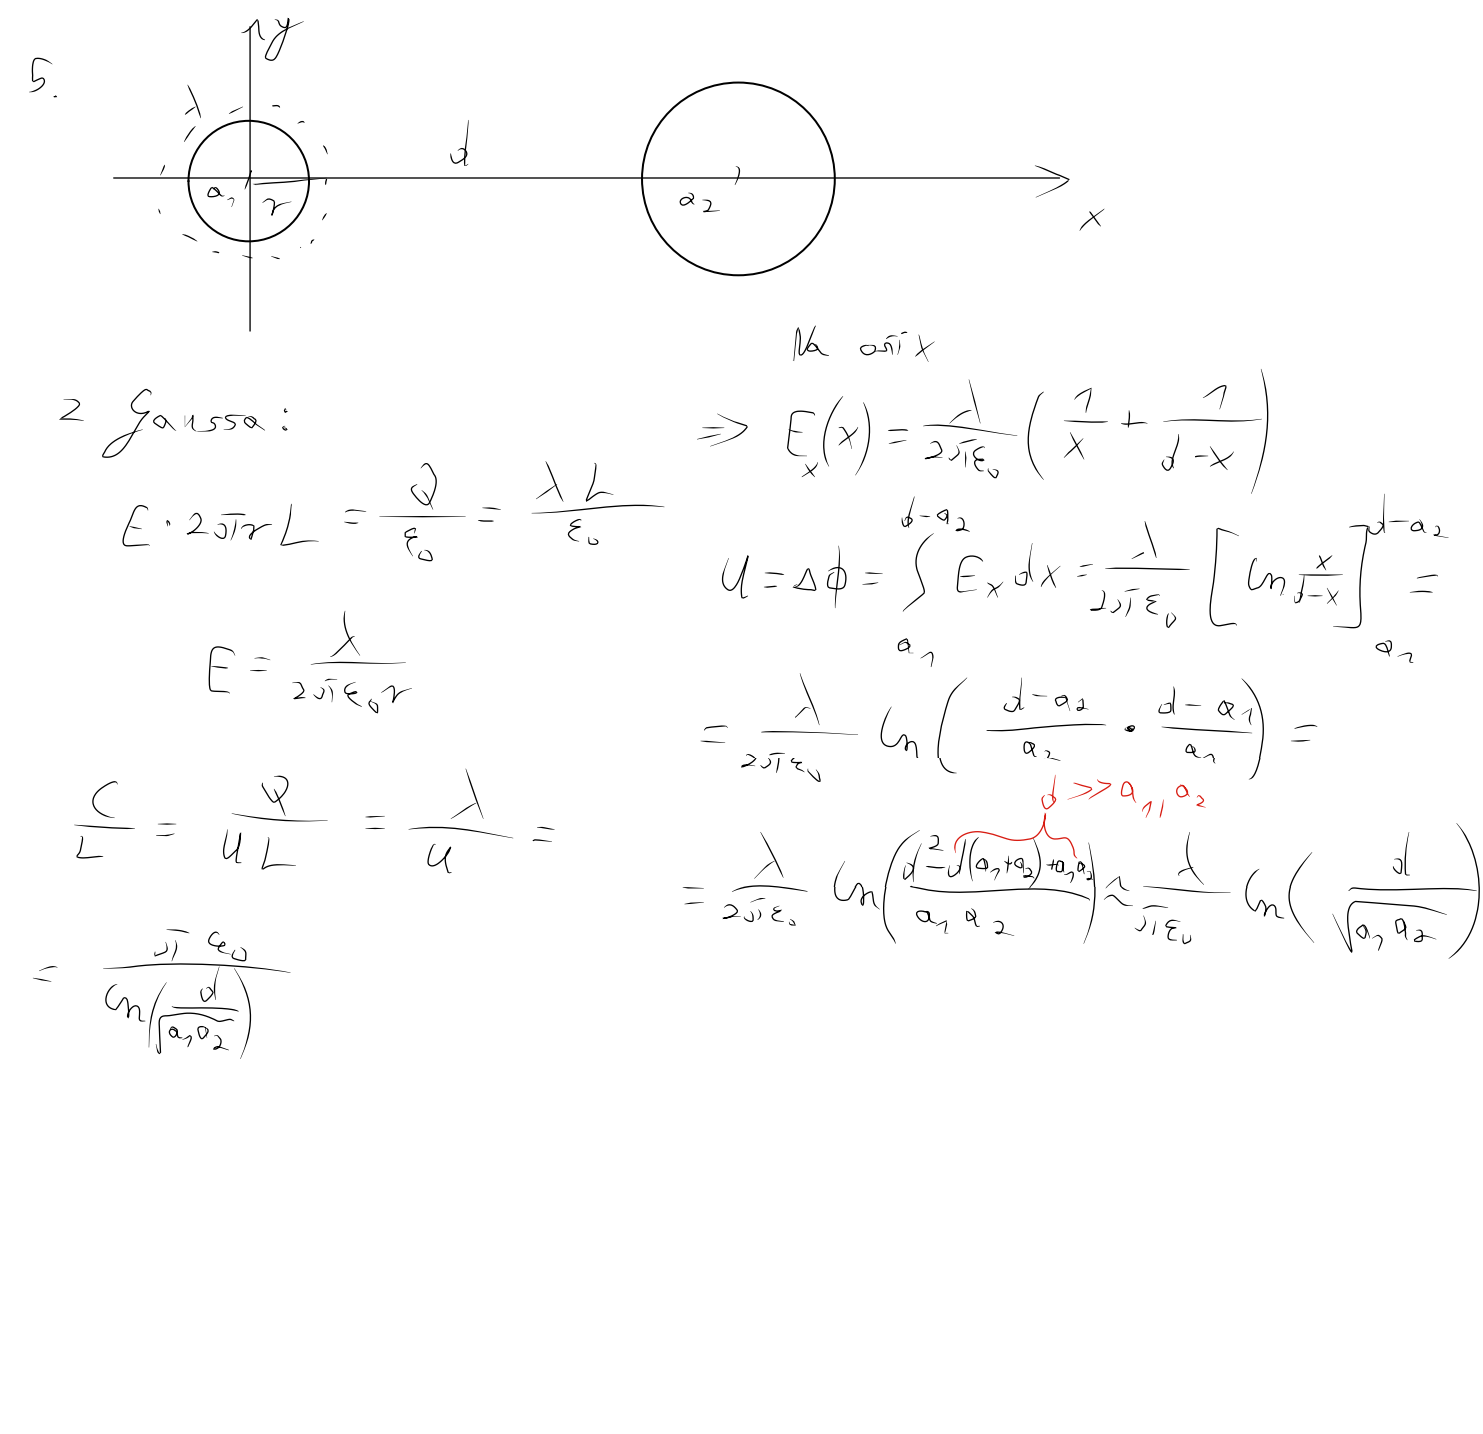 5.
y
λ
d
a₁
r
a₂
x
Z Gaussa:
E · 2πrL = Q/ε₀ = λL/ε₀
E = λ/(2πε₀r)
C/L = Q/(UL) = λ/U =
= πε₀/ln(d/√(a₁a₂))
Na osi x
⇒ Eₓ(x) = λ/(2πε₀) (1/x + 1/(d-x))
U = Δϕ = ∫_{a₁}^{d-a₂} Eₓ dx = λ/(2πε₀) [ln x/(d-x)]_{a₁}^{d-a₂} =
= λ/(2πε₀) ln((d-a₂)/a₂ · (d-a₁)/a₁) =
d >> a₁, a₂
= λ/(2πε₀) ln((d²-d(a₁+a₂)+a₁a₂)/(a₁a₂)) ≈ λ/(πε₀) ln(d/√(a₁a₂))